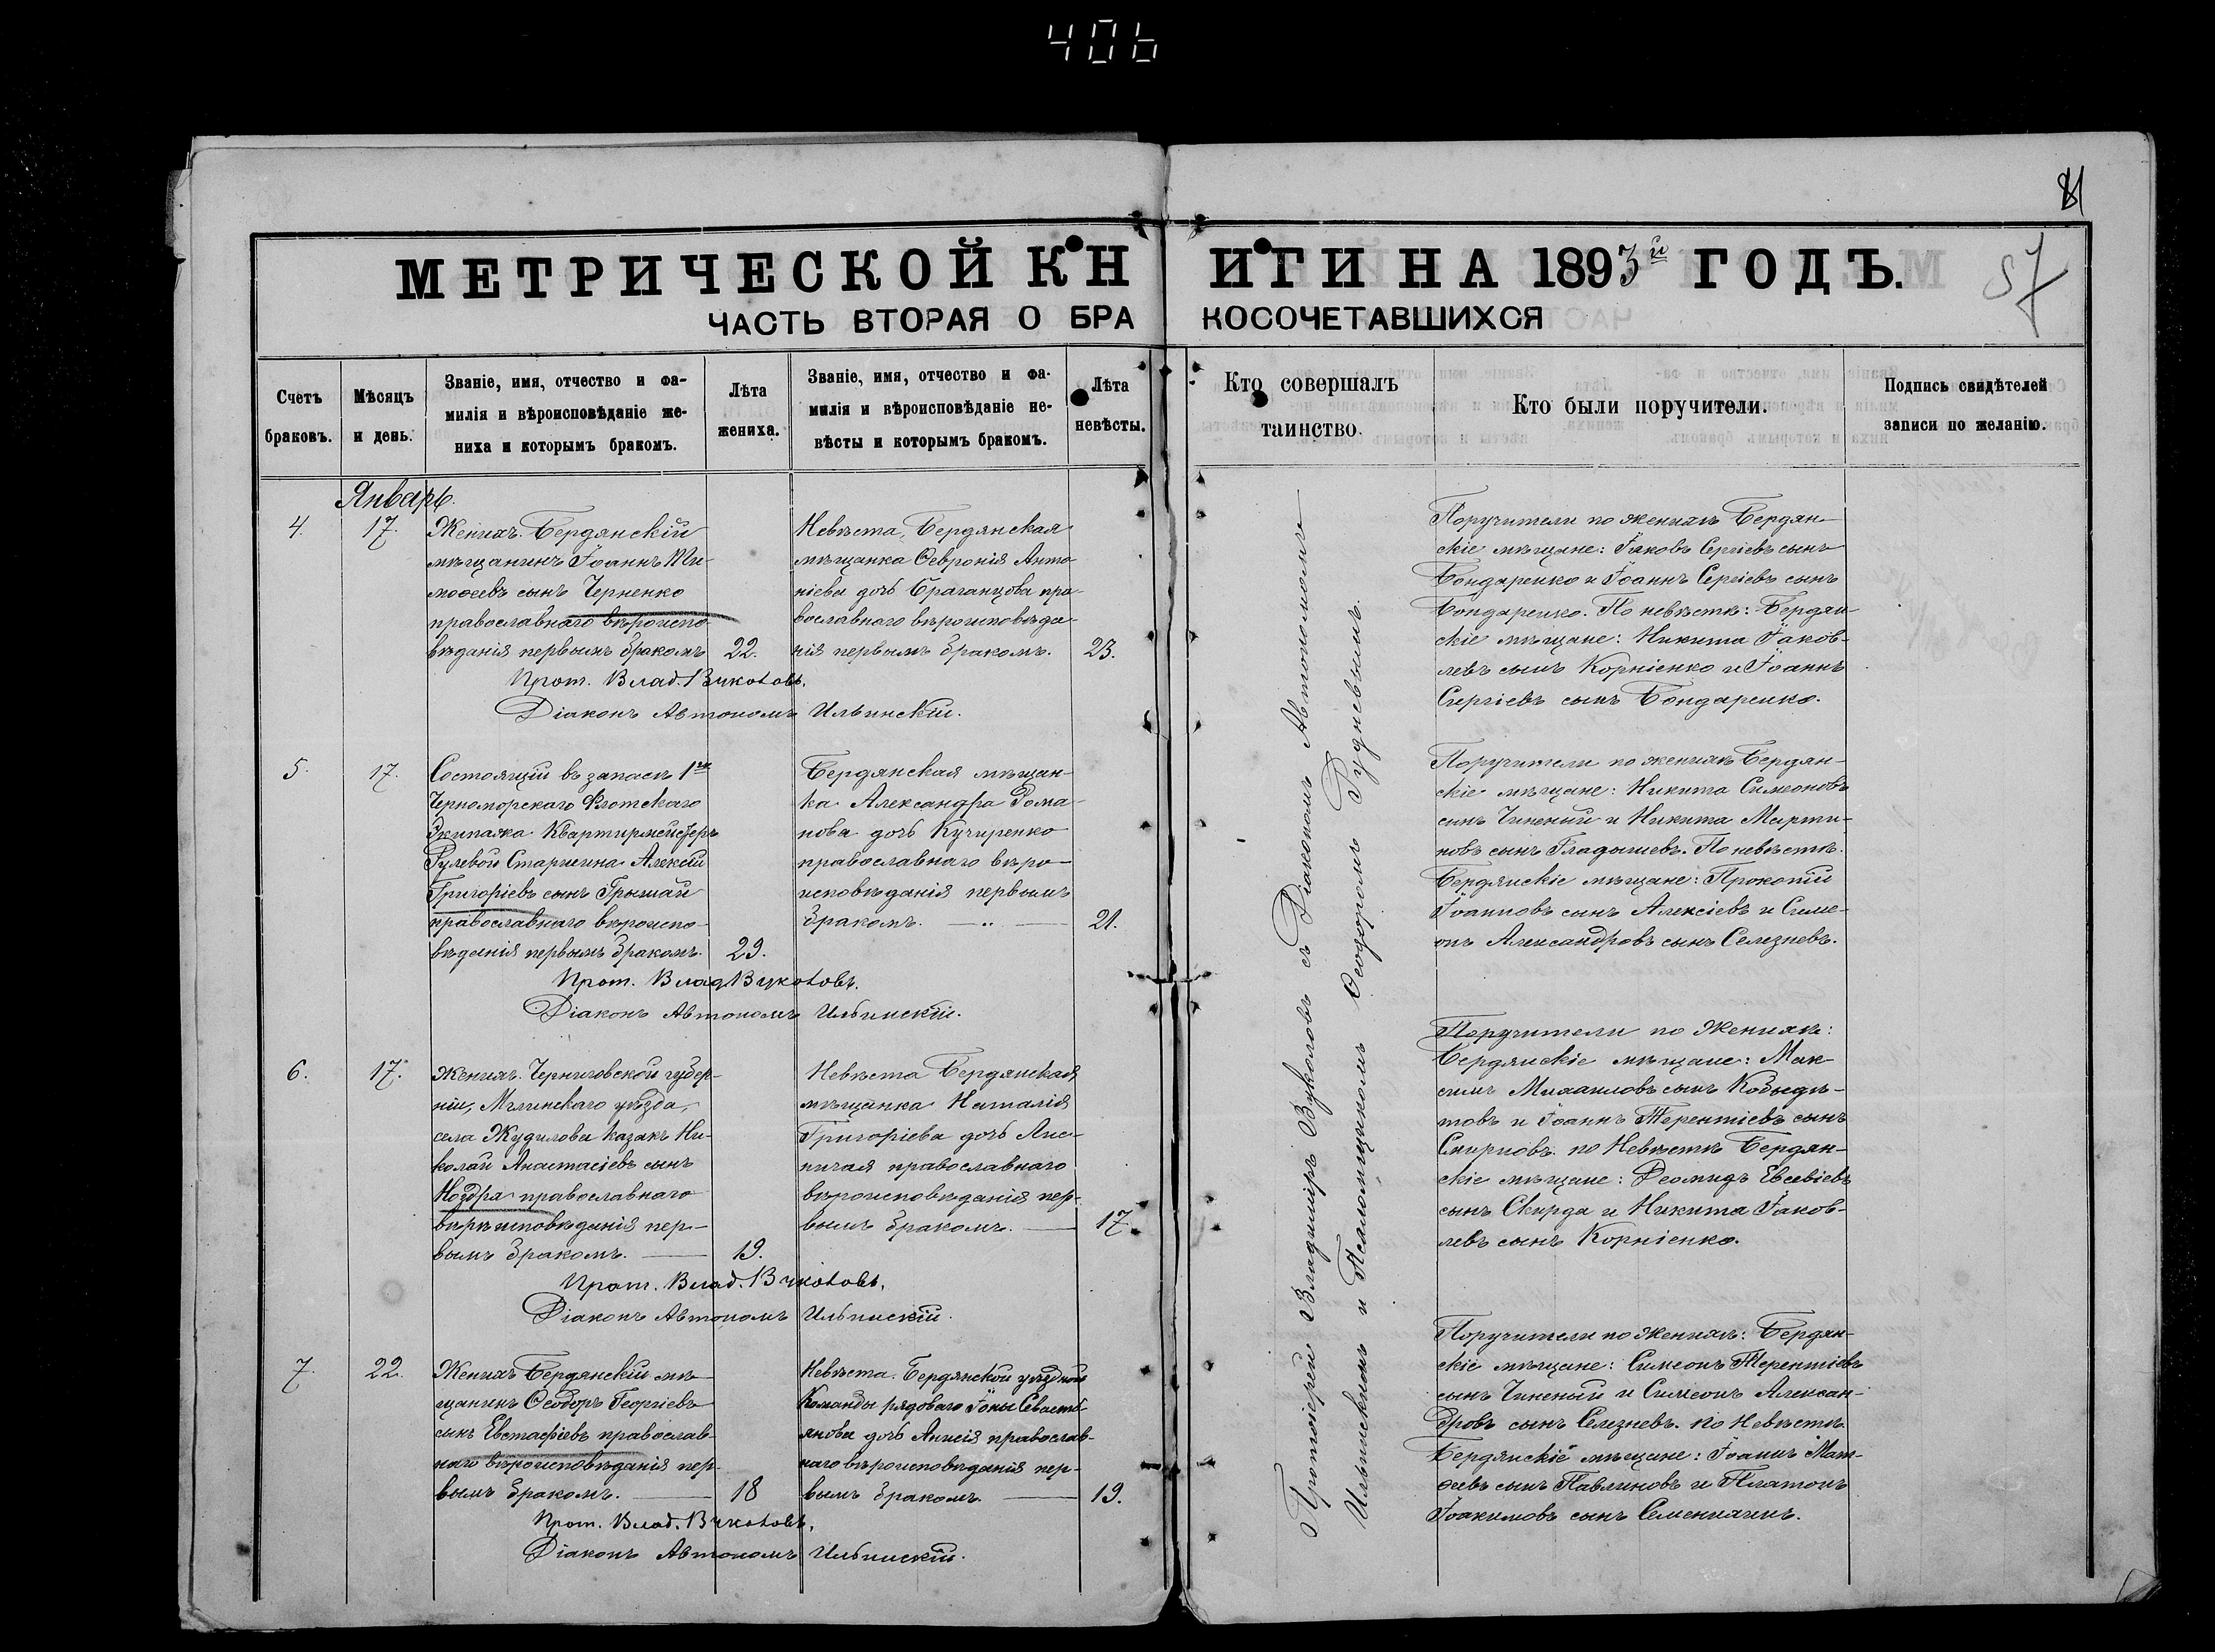 406
81
57
МЕТРИЧЕСКОЙ КНИГИ НА 1893й ГОДЪ.
ЧАСТЬ ВТОРАЯ О БРАКОСОЧЕТАВШИХСЯ
Счетъ
браковъ.
Мѣсяцъ
и день.
Званіе, имя, отчество и фа-
милія и вѣроисповѣданіе же-
ниха и которымъ бракомъ.
Лѣта
жениха.
Званіе, имя, отчество и фа-
милія и вѣроисповѣданіе не-
вѣсты и которымъ бракомъ.
Лѣта
невѣсты.
Кто совершалъ
таинство.
Кто были поручители.
Подпись свидѣтелей
записи по желанію.
Январь.
4.
17.
Женихъ. Бердянскій
мѣщанинъ Іоаннъ Ти-
моѳеевъ сынъ Черненко
православнаго вѣроиспо-
вѣданія первымъ бракомъ
22.
Невѣста, Бердянская
мѣщанка Ѳевронія Анто-
ніева дочь Браганцова пра-
вославнаго вѣроисповѣда-
нія первымъ бракомъ.
23.
Прот. Влад. Вуколовъ.
Діаконъ Автономъ Ильинскій.
Поручители по женихѣ Бердян-
скіе мѣщане: Іаковъ Сергіевъ сынъ
Бондаренко и Іоаннъ Сергіевъ сынъ
Бондаренко. По невѣстѣ: Бердян-
скіе мѣщане: Никита Іаков-
левъ сынъ Корніенко и Іоаннъ
Сергіевъ сынъ Бондаренко.
5.
17.
Состоящій въ запасѣ 1го
Черноморскаго Флотскаго
Экипажа Квартирмейстеръ
Рулевой Старшина Алексій
Григоріевъ сынъ Грымай
православнаго вѣроиспо-
вѣданія первымъ бракомъ.
29.
Бердянская мѣщан-
ка Александра Рома-
нова дочь Кучиренко
православнаго вѣро-
исповѣданія первымъ
бракомъ.
21.
Прот. Влад Вуколовъ.
Діаконъ Автономъ Ильинскій.
Поручители по женихѣ Бердян-
скіе мѣщане: Никита Симеоновъ
сынъ Чиненый и Никита Марти-
новъ сынъ Гладышевъ. По невѣстѣ.
Бердянскіе мѣщане: Прокопій
Іоанновъ сынъ Алексіевъ и Симе-
онъ Александровъ сынъ Селезневъ.
6.
17.
Женихъ. Черниговской губер-
ніи, Мглинскаго уѣзда,
села Жудилова казакъ Ни-
колай Анастасіевъ сынъ
Ноздря православнаго
вѣроисповѣданія пер-
вымъ бракомъ.
19.
Невѣста Бердянская
мѣщанка Наталія
Григоріева дочь
православнаго
вѣроисповѣданія пер-
вымъ бракомъ.
17.
Прот. Влад. Вуколовъ.
Діаконъ Автономъ Ильинскій.
Поручители по Женихѣ:
Бердянскіе мѣщане: Мак-
симъ Михаиловъ сынъ
и Іоаннъ Терентіевъ сынъ
Смирновъ. по Невѣстѣ Бердян-
скіе мѣщане: Деомидъ Евсевіевъ
сынъ Скирда и Никита Іаков-
левъ сынъ Корніенко.
7.
22.
Женихъ Бердянскій мѣ-
щанинъ Ѳеодоръ Георгіевъ
сынъ Евстафіевъ православ-
наго вѣроисповѣданія пер-
вымъ бракомъ.
18
Невѣста. Бердянской уѣздной
Команды рядоваго Іоны Севасть-
янова дочь Анисія православ-
наго вѣроисповѣданія пер-
вымъ бракомъ
19.
Прот. Влад. Вуколовъ.
Діаконъ Автономъ Ильинскій.
Поручители по Женихѣ: Бердян-
скіе мѣщане: Симеонъ Терентіевъ
сынъ Чиненый и Симеонъ Алексан-
дровъ сынъ Селезневъ. По Невѣстѣ
Бердянскіе мѣщане: Іоаннъ Мат-
ѳеевъ сынъ Павлиновъ и Платонъ
Іоакимовъ сынъ
Протоіерей Владиміръ Вуколовъ съ Діакономъ Автономомъ
Ильинскимъ и Псаломщикомъ Ѳеодоромъ Рудневымъ.